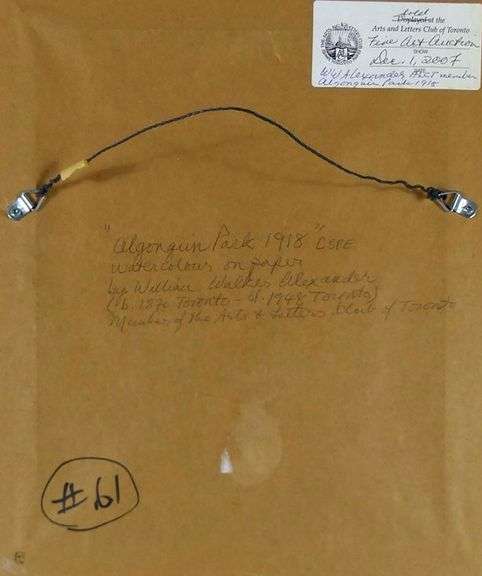 sold
Displayed at the
Arts and Letters Club of Toronto
Fine Art Auction
SHOW
Dec. 1, 2007
DATE
W.W. Alexander member
Algonquin Park 1918
"Algonquin Park 1918" CSPE
watercolour on paper
by William Walker Alexander
(b. 1870 Toronto - d. 1948 Toronto)
Member, of the Arts & Letters Club of Toronto
#61